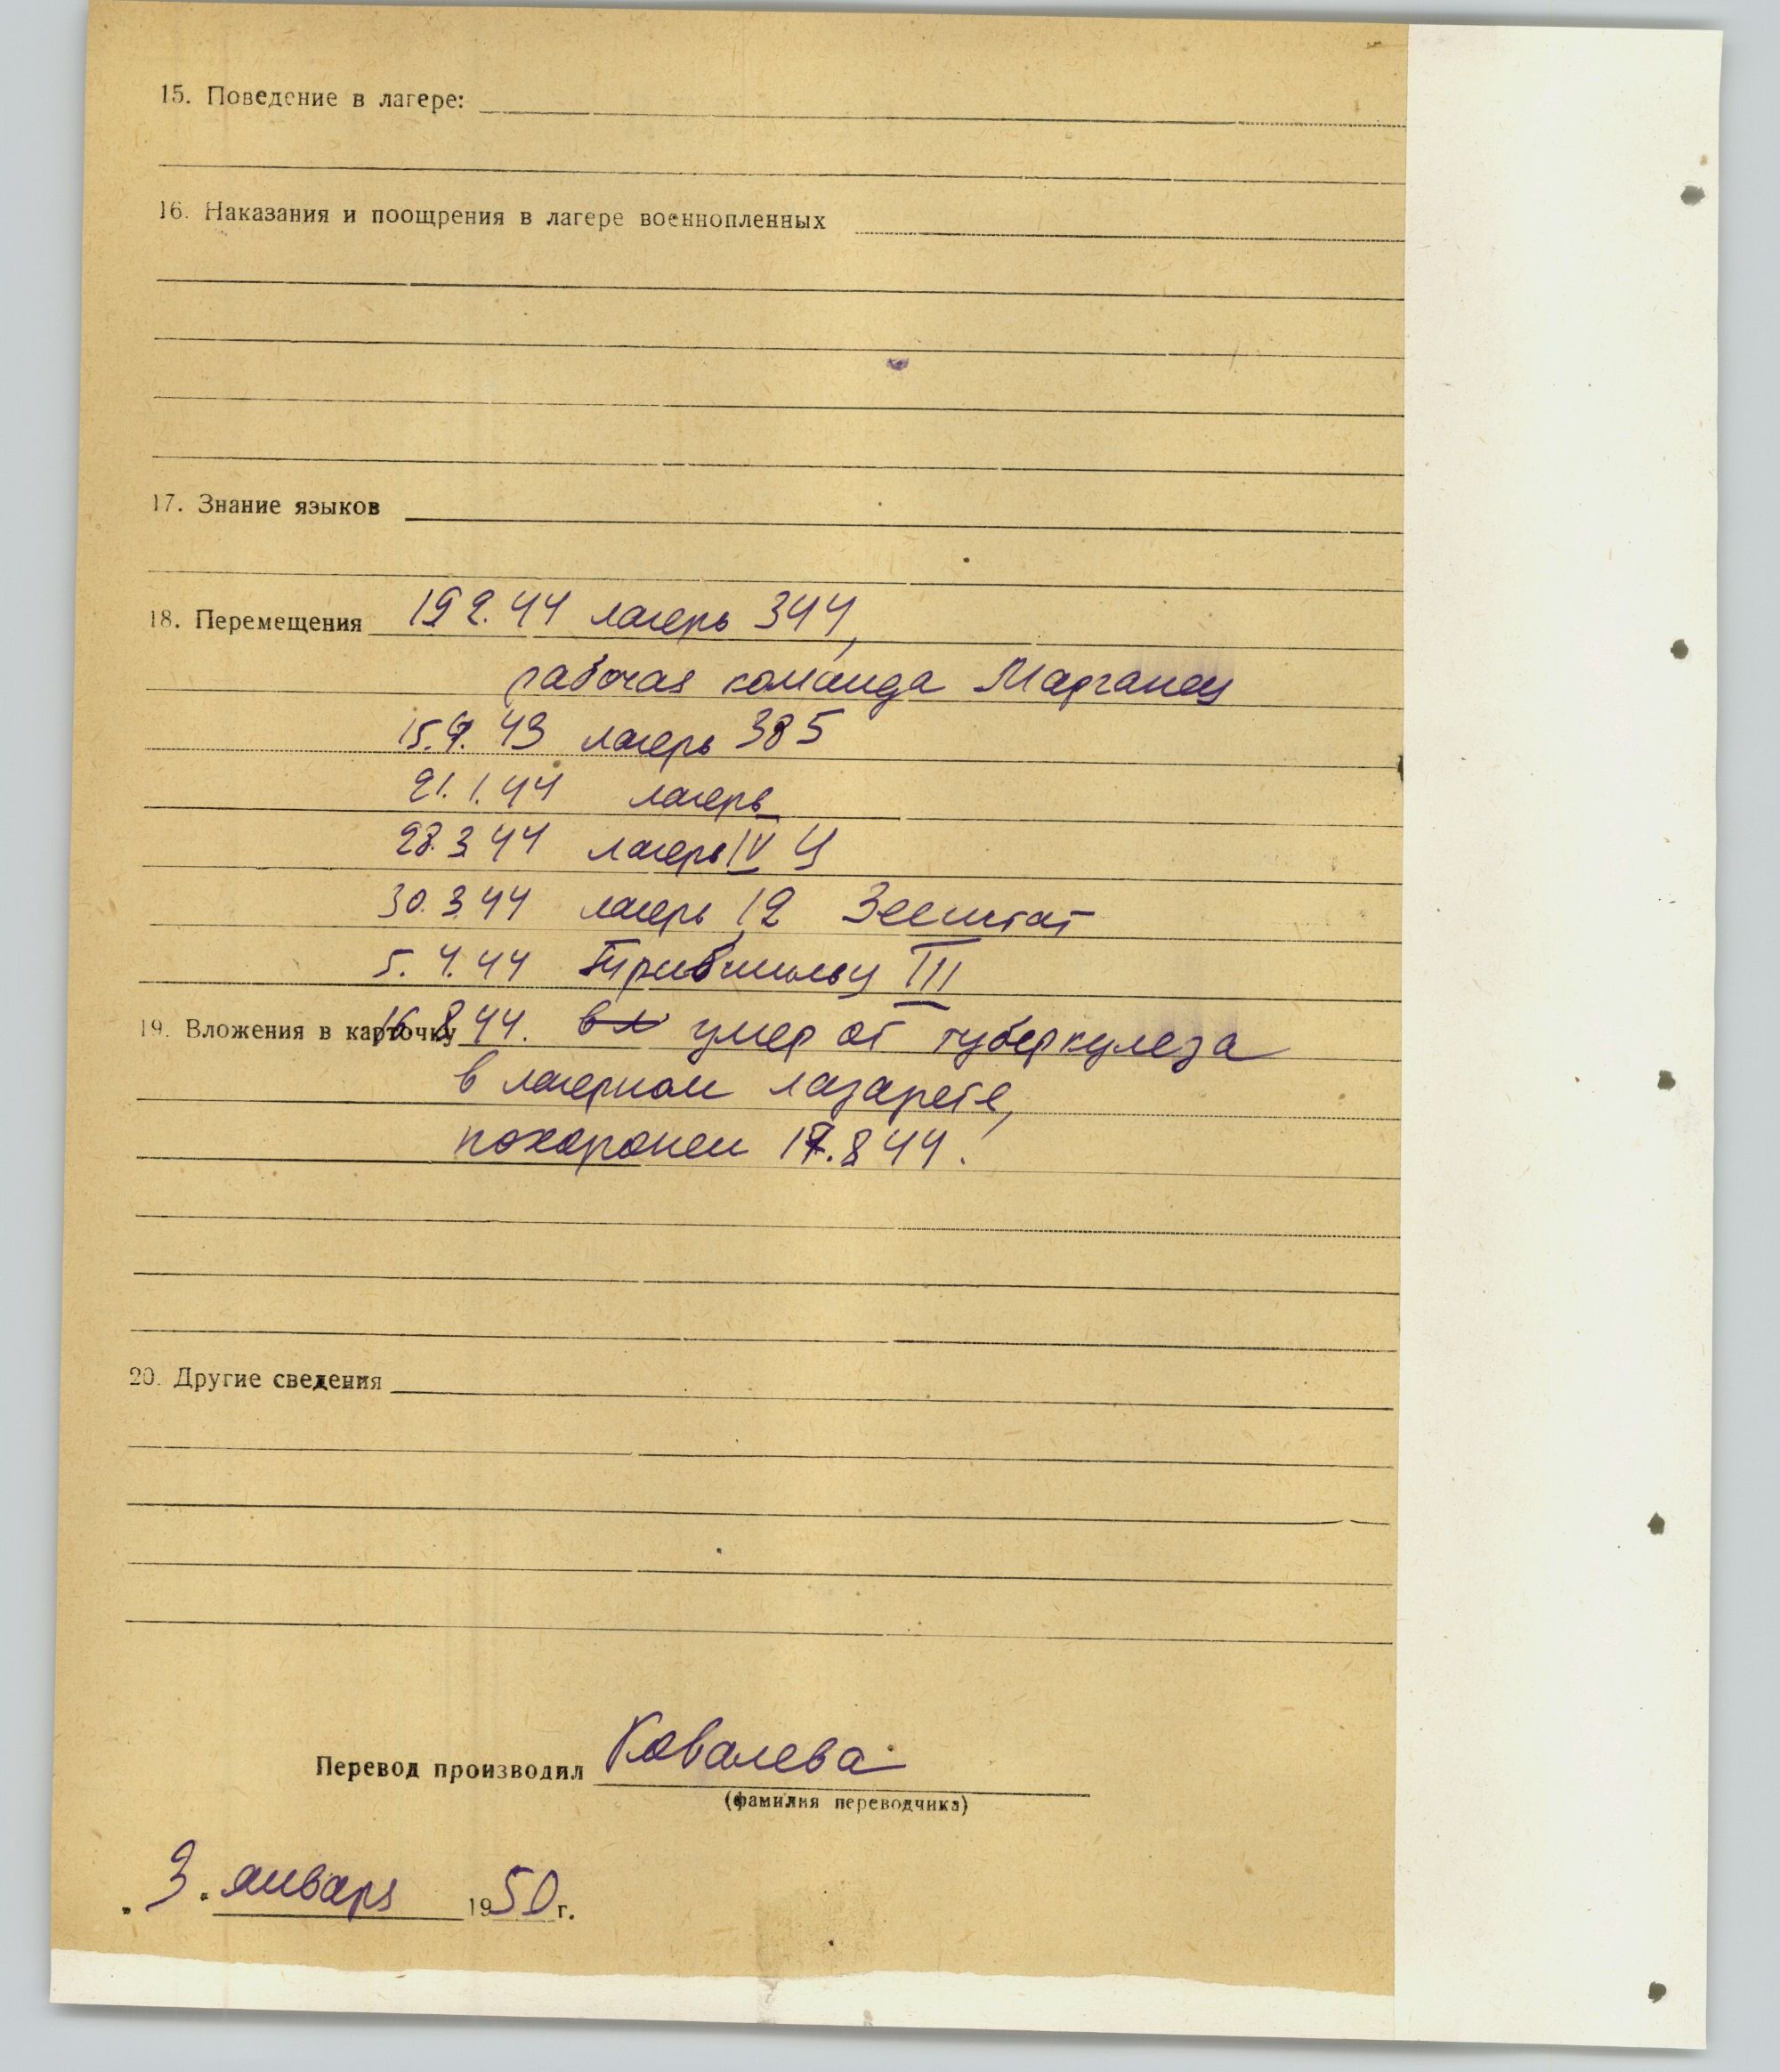 15. Поведение в лагере:
16. Наказания и поощрения в лагере военнопленных
17. Знание языков
18. Перемещения 19 2. 44 лагерь 344,
рабочая команда Марганец
15.9. 43 лагерь 385
21. 1. 44 лагерь
28. 3 44 лагерь IV Ц
30. 3. 44 лагерь 12 Зеештат
5. 4. 44 III
19. Вложения в карточку 16 8 44. в л умер от туберкулеза
в лагерном лазарете,
похоронен 17. 8 44.
20. Другие сведения
Перевод производил Ковалева
(фамилия переводчика)
„ 3. январь 1950 г.